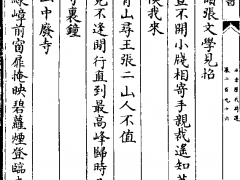 張文學見招
豈不開小牋相寄手親裁遙知
候我來
青山尋王張二山人不值
見不逢閒行直到最高峰歸時
裏鏡
山中廢寺
嶂前窗扉掩映碧蘿煙登臨